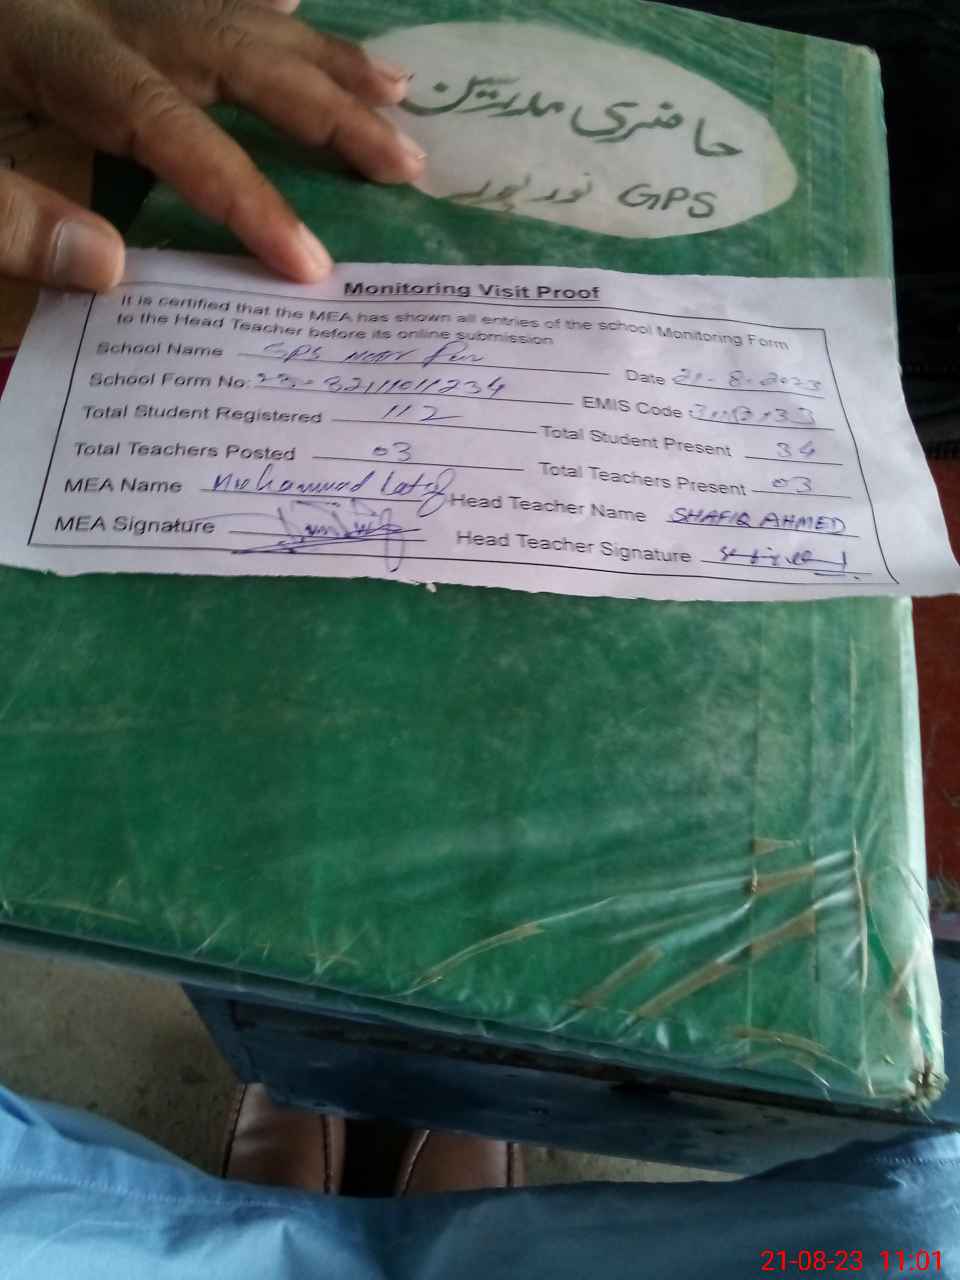 حاضری مدرسین
GPS نور پور
Monitoring Visit Proof
It is certified that the MEA has shown all entries of the school Monitoring Form
to the Head Teacher before its online submission
School Name GPS Noor Pur Date 21-8-2023
School Form No: 32111011234 EMIS Code
Total Student Registered 112 Total Student Present 34
Total Teachers Posted 03 Total Teachers Present 03
MEA Name Muhammad Latif Head Teacher Name SHAFIQ AHMED
MEA Signature Head Teacher Signature
21-08-23 11:01